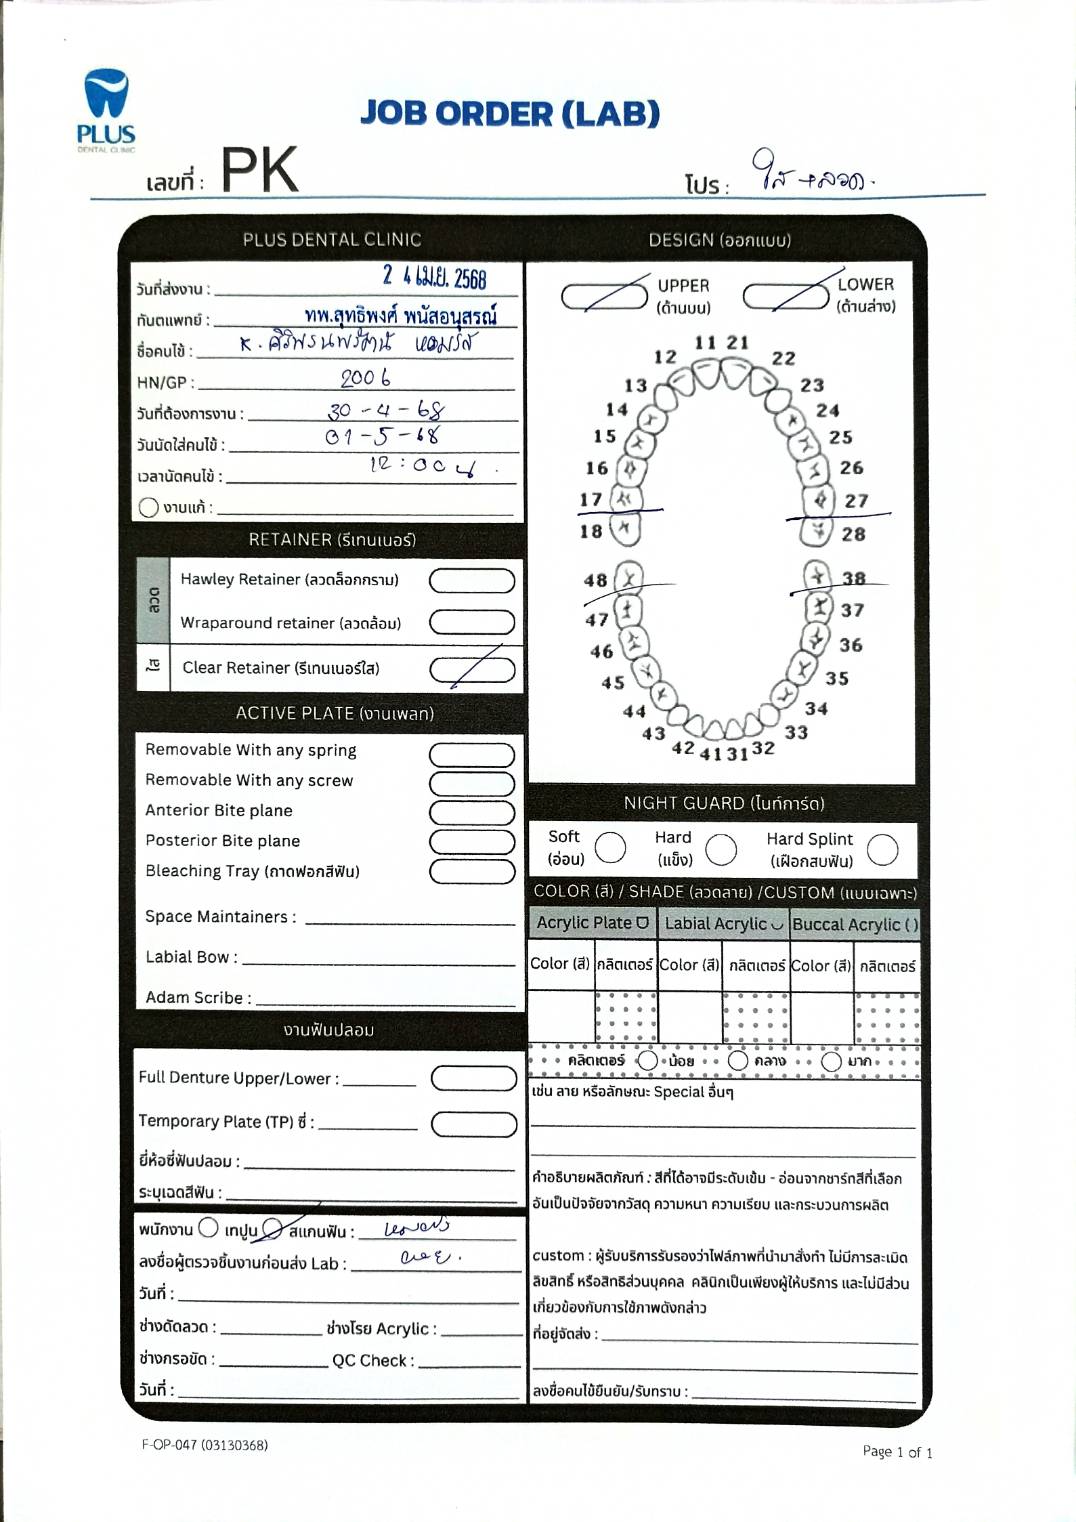 PLUS
DENTAL CLINIC
JOB ORDER (LAB)
เลขที่ : PK
โปร : ใส
PLUS DENTAL CLINIC
วันที่ส่งงาน : 2 4 เม.ย. 2568
ทันตแพทย์ : ทพ.สุทธิพงศ์ พนัสอนุสรณ์
ชื่อคนไข้ : K.
HN/GP : 2006
วันที่ต้องการงาน : 30-4-68
วันนัดใส่คนไข้ : 01-5-68
เวลานัดคนไข้ : 12:00 น.
งานแก้ :
RETAINER (รีเทนเนอร์)
ลวด
Hawley Retainer (ลวดล็อกกราม)
Wraparound retainer (ลวดล้อม)
ใส
Clear Retainer (รีเทนเนอร์ใส)
ACTIVE PLATE (งานเพลท)
Removable With any spring
Removable With any screw
Anterior Bite plane
Posterior Bite plane
Bleaching Tray (ถาดฟอกสีฟัน)
Space Maintainers :
Labial Bow :
Adam Scribe :
งานฟันปลอม
Full Denture Upper/Lower :
Temporary Plate (TP) ซี่ :
ยี่ห้อซี่ฟันปลอม :
ระบุเฉดสีฟัน :
พนักงาน เทปูน สแกนฟัน :
ลงชื่อผู้ตรวจชิ้นงานก่อนส่ง Lab :
วันที่ :
ช่างดัดลวด : ช่างโรย Acrylic :
ช่างกรอขัด : QC Check :
วันที่ :
DESIGN (ออกแบบ)
UPPER
(ด้านบน)
LOWER
(ด้านล่าง)
11 21
12 22
13 23
14 24
15 25
16 26
17 27
18 28
48 38
47 37
46 36
45 35
44 34
43 33
42 41 31 32
NIGHT GUARD (ไนท์การ์ด)
Soft
(อ่อน)
Hard
(แข็ง)
Hard Splint
(เฝือกสบฟัน)
COLOR (สี) / SHADE (ลวดลาย) /CUSTOM (แบบเฉพาะ)
Acrylic Plate Labial Acrylic Buccal Acrylic ( )
Color (สี) กลิตเตอร์ Color (สี) กลิตเตอร์ Color (สี) กลิตเตอร์
กลิตเตอร์ น้อย กลาง มาก
เช่น ลาย หรือลักษณะ Special อื่นๆ
คำอธิบายผลิตภัณฑ์ : สีที่ได้อาจมีระดับเข้ม - อ่อนจากชาร์ทสีที่เลือก
อันเป็นปัจจัยจากวัสดุ ความหนา ความเรียบ และกระบวนการผลิต
custom : ผู้รับบริการรับรองว่าไฟล์ภาพที่นำมาสั่งทำ ไม่มีการละเมิด
ลิขสิทธิ์ หรือสิทธิส่วนบุคคล คลินิกเป็นเพียงผู้ให้บริการ และไม่มีส่วน
เกี่ยวข้องกับการใช้ภาพดังกล่าว
ที่อยู่จัดส่ง :
ลงชื่อคนไข้ยืนยัน/รับทราบ :
F-OP-047 (03130368)
Page 1 of 1